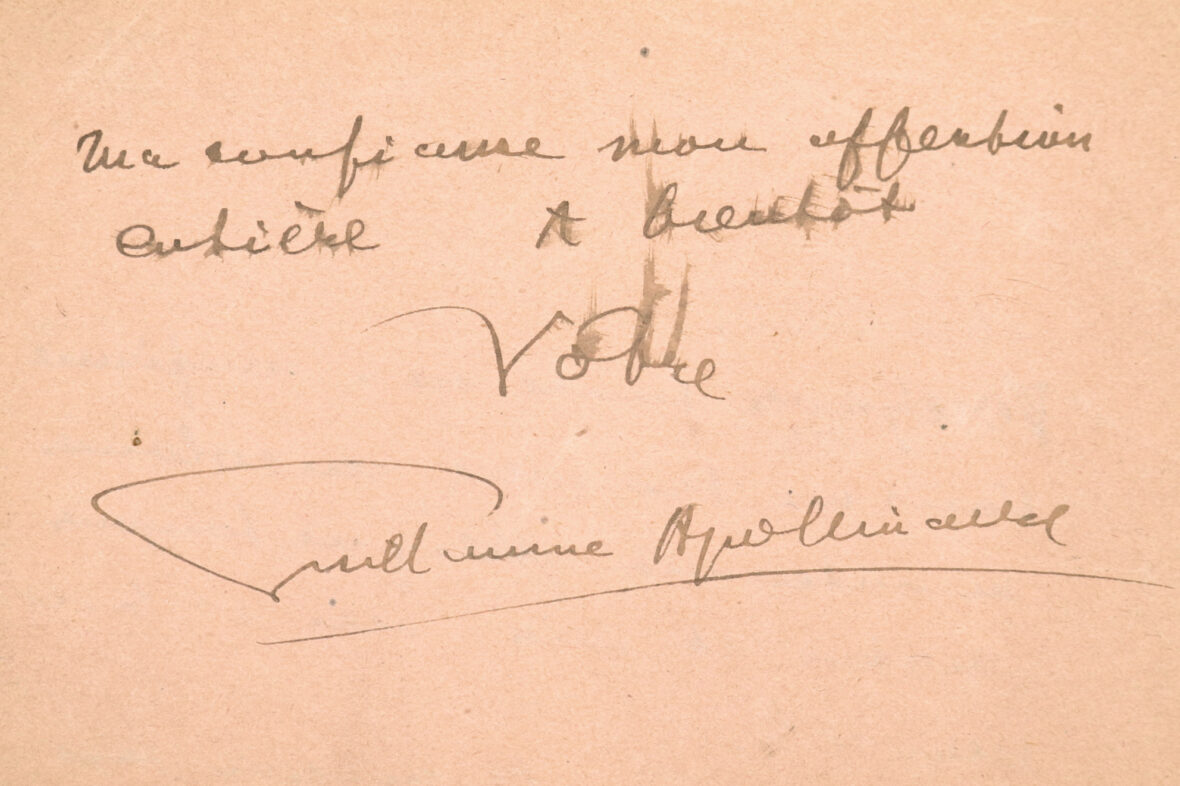 Ma confiance mon affection
entière A bientôt
Votre
Guillaume Apollinaire